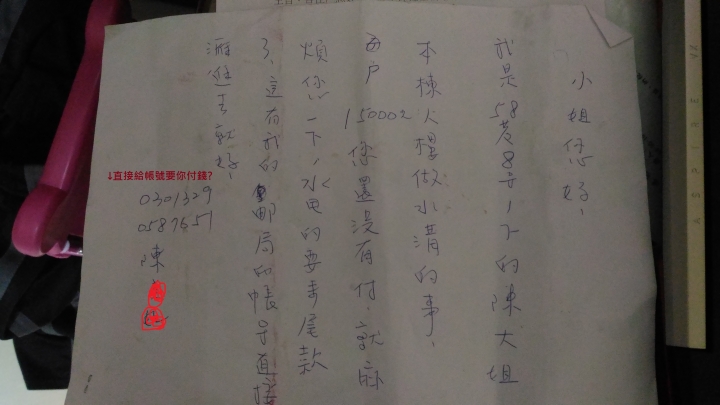 小姐您好,
我是58巷8弄1下的陳大姐
本棟火檔做水溝的事,
两户150002您還沒有付,就麻
煩您一下,水电的要拿尾款
了,這有我的郵局的帳号直接
滙進去就好,
↓直接給帳號要你付錢?
0301329
0587651
陳
ASPIRE VX